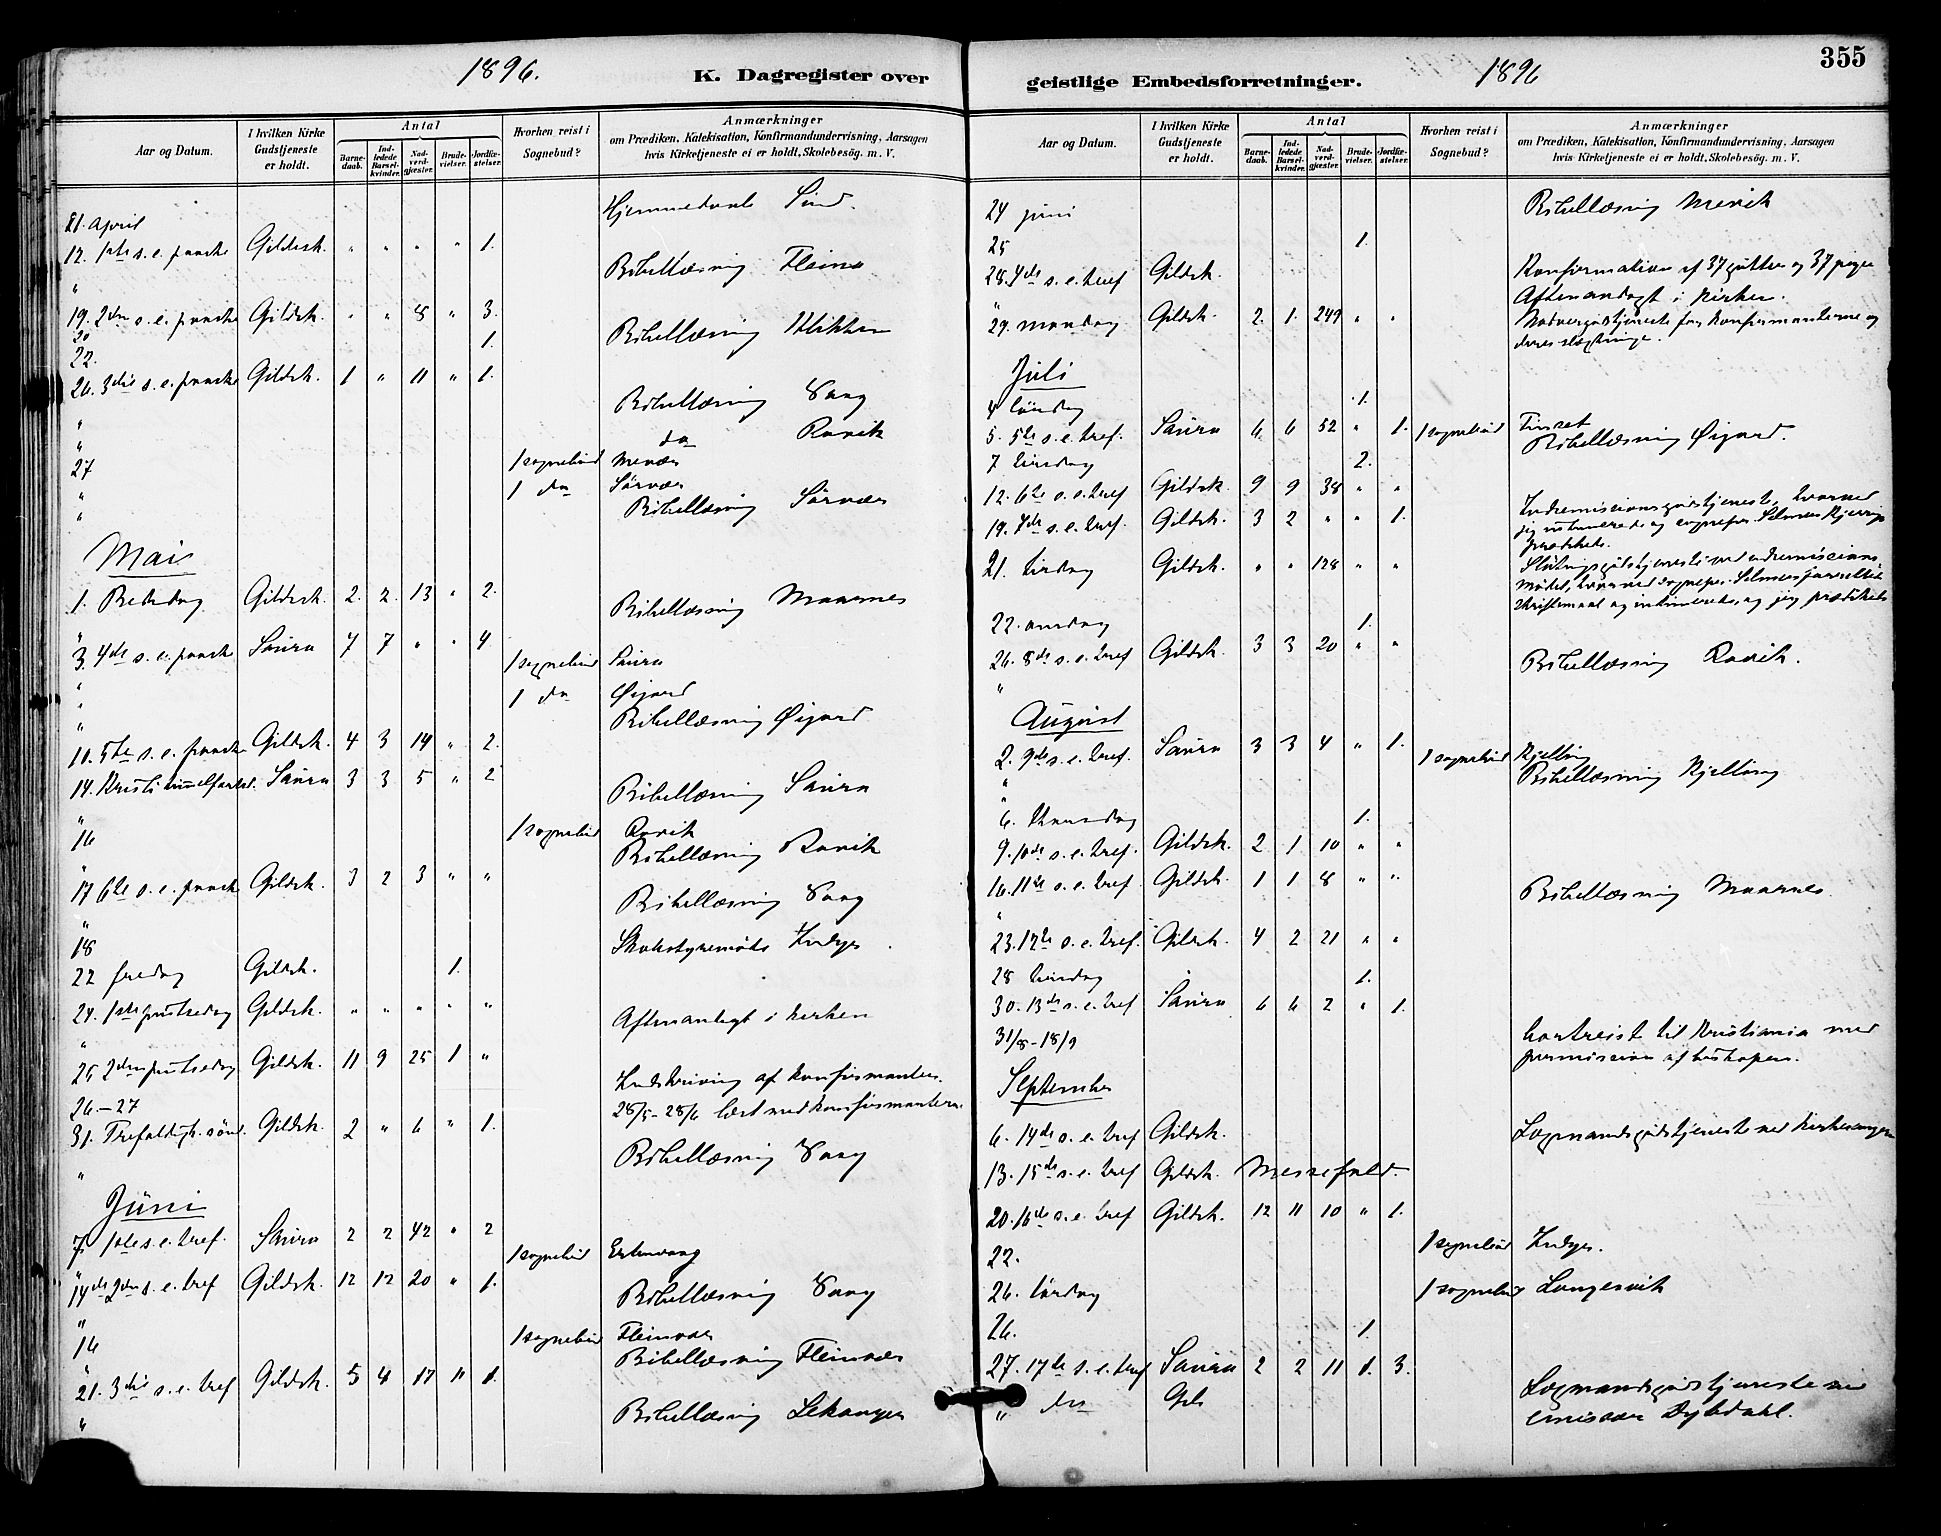 1896.
K. Dagregister over
Aar og Datum.
I hvilken Kirke Gudstjeneste er holdt.
Antal
Barne-daab.
Ind-ledede Barsel-kvinder.
Nad-verd-gjæster.
Brude-vielser.
Jordfæ-stelser.
Hvorhen reist i Sognebud?
Anmærkninger
om Prædiken, Katekisation, Konfirmandundervisning, Aarsagen
hvis Kirketjeneste ei er holdt, Skolebesög. m. V.
21. April
12. 1ste s. e. paaske Gildesk. " " " " 1.
" Bibellæsning
19. 2den s. e. paaske Gildsk. " " 8 " 3.
20 Bibellæsning
22. 1.
26. 3die s. e. paaske Gildsk. 1 " 11 " 1.
" Bibellæsning Vaag
" do Ravik
27 1 sognebud
" 1 do Sørvær
" Bibellæsning Sørvær
Mai
1. Bededag Gildesk. 2. 2. 13 " 2.
" Bibellæsning Maarnes
3. 4de s. e. paaske Saura 7 7 " " 4
" 1 sognebud Saura
" 1 do Øigard
" Bibellæsning Øigard
10. 5te s. e. paaske Gildsk. 4 3 14 " 2.
14. Kristi himmelfartsd. Saura 3 3 5 " 2
" Bibellæsning Saura
16 1 sognebud Ravik
" Bibellæsning Ravik
17 6te s. e. paaske Gildsk. 3 2 3 " "
" Bibellæsning Vaag
18 Skolestyremøde Indyr.
22 fredag Gildsk. 1.
24. 1ste pintsedag Gildsk. " " " " "
" Aftenandagt i kirken
25 2den pintsedag Gildsk. 11 9 25 1 "
26–27 Indskrivning af konfirmanter.
28/5–28/6 læst med konfirmanterne
31. Trefoldigh. sønd. Gildsk. 2 " 6 " 1.
" Bibellæsning Vaag
Juni
7. 1ste s. e. tref. Saura 2 2 42 " 2
" 1 sognebud
14de 2den s. e. tref Gildsk. 12 12 20 " 1.
" Bibellæsning Vaag
16 1 sognebud Fleinvær
" Bibellæsning Fleinvær
21. 3die s. e. tref Gildsk. 5 4 17 " 1.
" Bibellæsning Lekanger
geistlige Embedsforretninger.
1896
355
Aar og Datum.
I hvilken Kirke Gudstjeneste er holdt.
Antal
Barne-daab.
Ind-ledede Barsel-kvinder.
Nad-verd-gjæster.
Brude-vielser.
Jordfæ-stelser.
Hvorhen reist i Sognebud?
Anmærkninger
om Prædiken, Katekisation, Konfirmandundervisning, Aarsagen
hvis Kirketjeneste ei er holdt, Skolebesög. m. V.
24 juni Bibellæsning Mevik
25 1.
28. 4de s. e. tref Gildsk. Konfirmation af 37 gutter og 37 piger
" Aftenandagt i kirken.
29. mandag Gildsk. 2. 1. 249 " " Nadvergudstjeneste for konfirmanterne og
deres slægtninge.
Juli
4 lørdag 1.
5. 5te s. e. tref. Saura 6 6 52 " 1. 1 sognebud
Bibellæsning Øigard.
7 tirsdag 2.
12. 6te s. e. tref Gildsk. 9 9 38 " "
19. 7de s. e. tref. Gildsk. 3 2 " " 1. Indremissionsgudstjeneste, hvorved
jeg intonerede og sognepr.
prædikede.
21. tirsdag Gildsk. " " 128 " " Slutningsgudstjeneste ved indremissions
mødet, hvorved sognepr.
skriftemaal og intonerede, og jeg prædikede
22. onsdag 1.
26. 8de s. e. tref Gildsk. 3 3 20 " "
" Bibellæsning Ravik.
August
2. 9de s. e. tref. Saura 3 3 4 " 1.
" 1 sognebud Kjelling
" Bibellæsning Kjelling
6. Thorsdag 1.
9. 10de s. e. tref. Gildsk. 2 1 10 " "
16. 11te s. e. tref. Gildsk. 1 1 8 " "
" Bibellæsning Maarnes
23. 12te s. e. tref. Gildsk. 4 2 21 " "
28 1.
30. 13de s. e. tref Saura 6 6 2 " 1.
31/8–18/9 bortreist til Kristiania med
permission af biskopen.
September
6. 14de s. e. tref Gildsk. Lægmandsgudstjeneste ved kirkesanger
13. 15de s. e. tref Gildsk. Messefald.
20. 16de s. e. tref Gildsk. 12 11 10 " 1.
22. 1 sognebud Indyr.
26. lørdag 1 sognebud Langesvik
26. 1.
27. 17de s. e. tref Saura 2 2 11 1. 3.
" do Gils Lægmandsgudstjeneste ved
emissær Dybdahl.